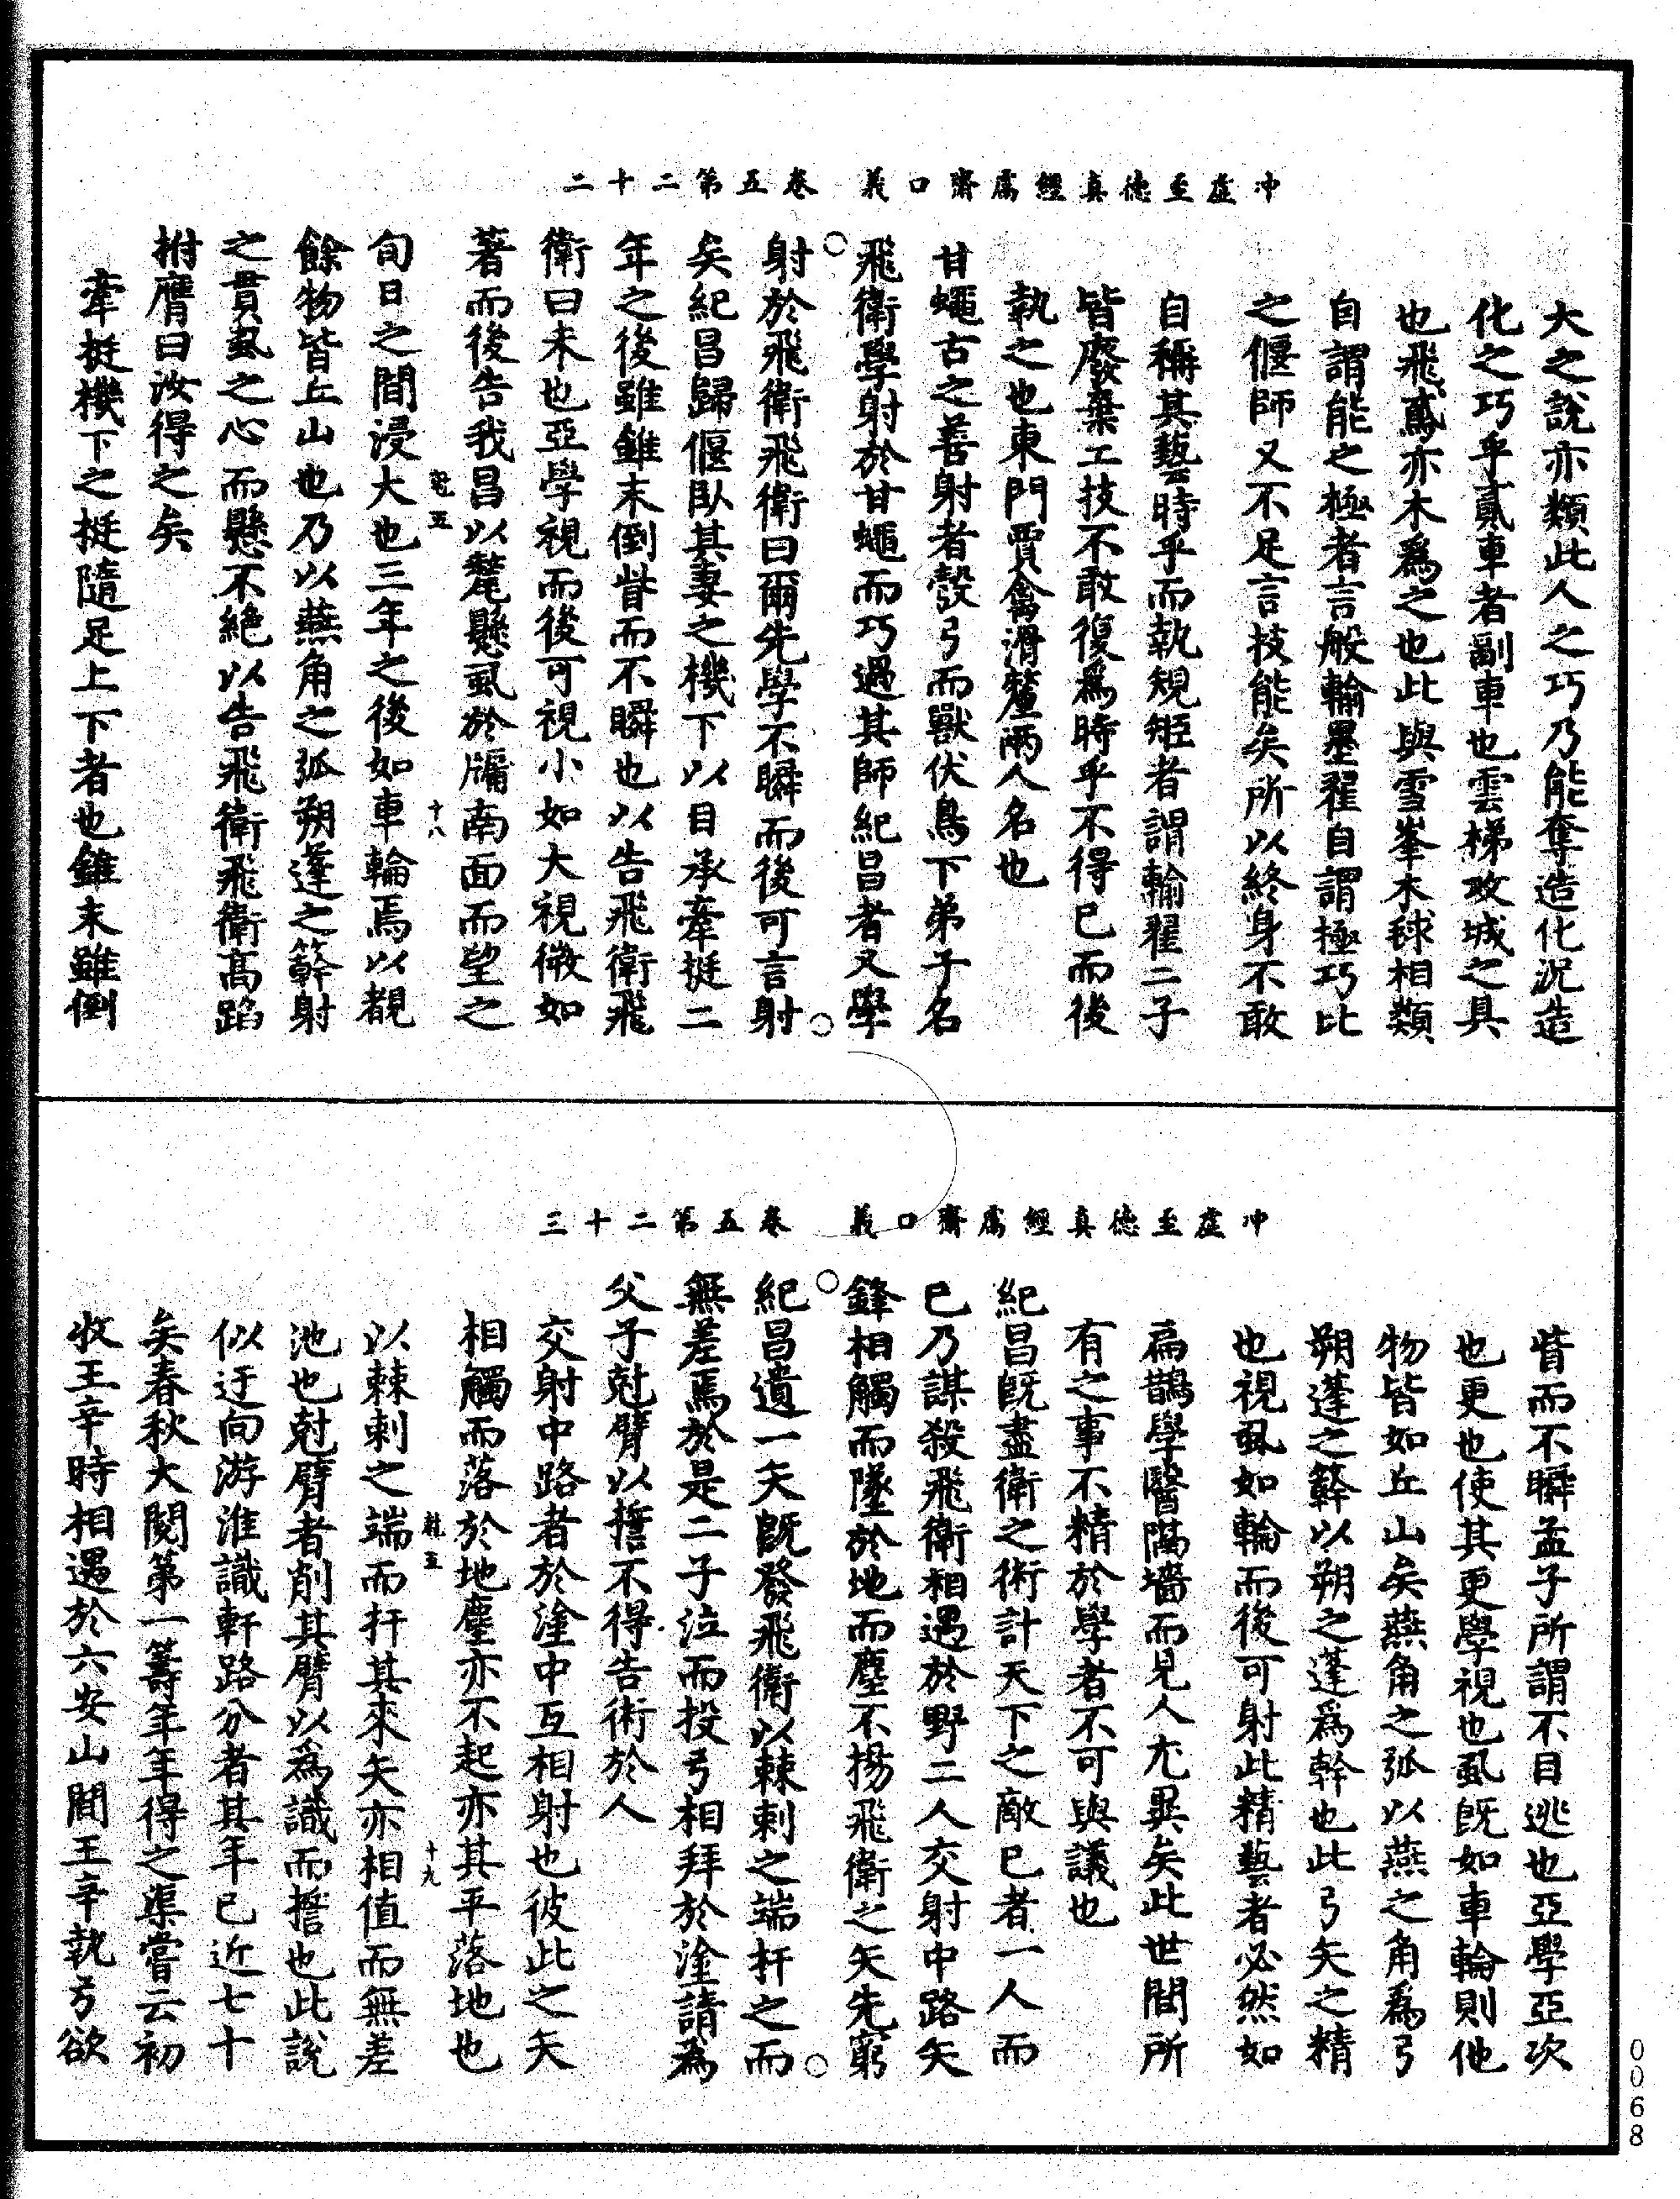 冲虛至德真經鬳齋口義　卷五第二十二
大之說亦類此人之巧乃能奪造化况造
化之巧乎貳車者副車也雲梯攻城之具
也飛鳶亦木爲之也此與雪峯木毬相類
自謂能之極者言般輸墨翟自謂極巧比
之偃師又不足言技能矣所以終身不敢
自稱其藝時乎而執規矩者謂輸翟二子
皆廢棄工技不敢復爲時乎不得已而後
執之也東門賈禽滑釐兩人名也
甘蠅古之善射者彀弓而獸伏鳥下弟子名
飛衛學射於甘蠅而巧過其師紀昌者又學
射於飛衛飛衛曰爾先學不瞬而後可言射
矣紀昌歸偃臥其妻之機下以目承牽挺二
年之後雖錐末倒眥而不瞬也以告飛衛飛
衛曰未也亞學視而後可視小如大視微如
著而後告我昌以氂懸虱於牖南面而望之
五　十八
旬日之間浸大也三年之後如車輪焉以覩
餘物皆丘山也乃以燕角之弧朔蓬之簳射
之貫虱之心而懸不絕以告飛衛飛衛高蹈
拊膺曰汝得之矣
牽挺機下之挺隨足上下者也錐末雖倒
冲虛至德真經鬳齋口義　卷五第二十三
眥而不瞬孟子所謂不目逃也亞學亞次
也更也使其更學視也虱旣如車輪則他
物皆如丘山矣燕角之弧以燕之角爲弓
朔蓬之簳以朔之蓬爲幹也此弓矢之精
也視虱如輪而後可射此精藝者必然如
扁鵲學醫隔墻而見人尤異矣此世間所
有之事不精於學者不可與議也
紀昌旣盡衛之術計天下之敵已者一人而
已乃謀殺飛衛相遇於野二人交射中路矢
鋒相觸而墜於地而塵不揚飛衛之矢先窮
紀昌遺一矢旣發飛衛以棘刺之端扞之而
無差焉於是二子泣而投弓相拜於塗請爲
父子尅臂以誓不得告術於人
交射中路者於塗中互相射也彼此之矢
相觸而落於地塵亦不起亦其平落地也
五　十九
以棘刺之端而扞其來矢亦相值而無差
池也尅臂者削其臂以爲識而誓也此說
似迂向游淮識軒路分者其年已近七十
矣春秋大閱第一籌年年得之渠嘗云初
收王辛時相遇於六安山間王辛執弓欲
0068